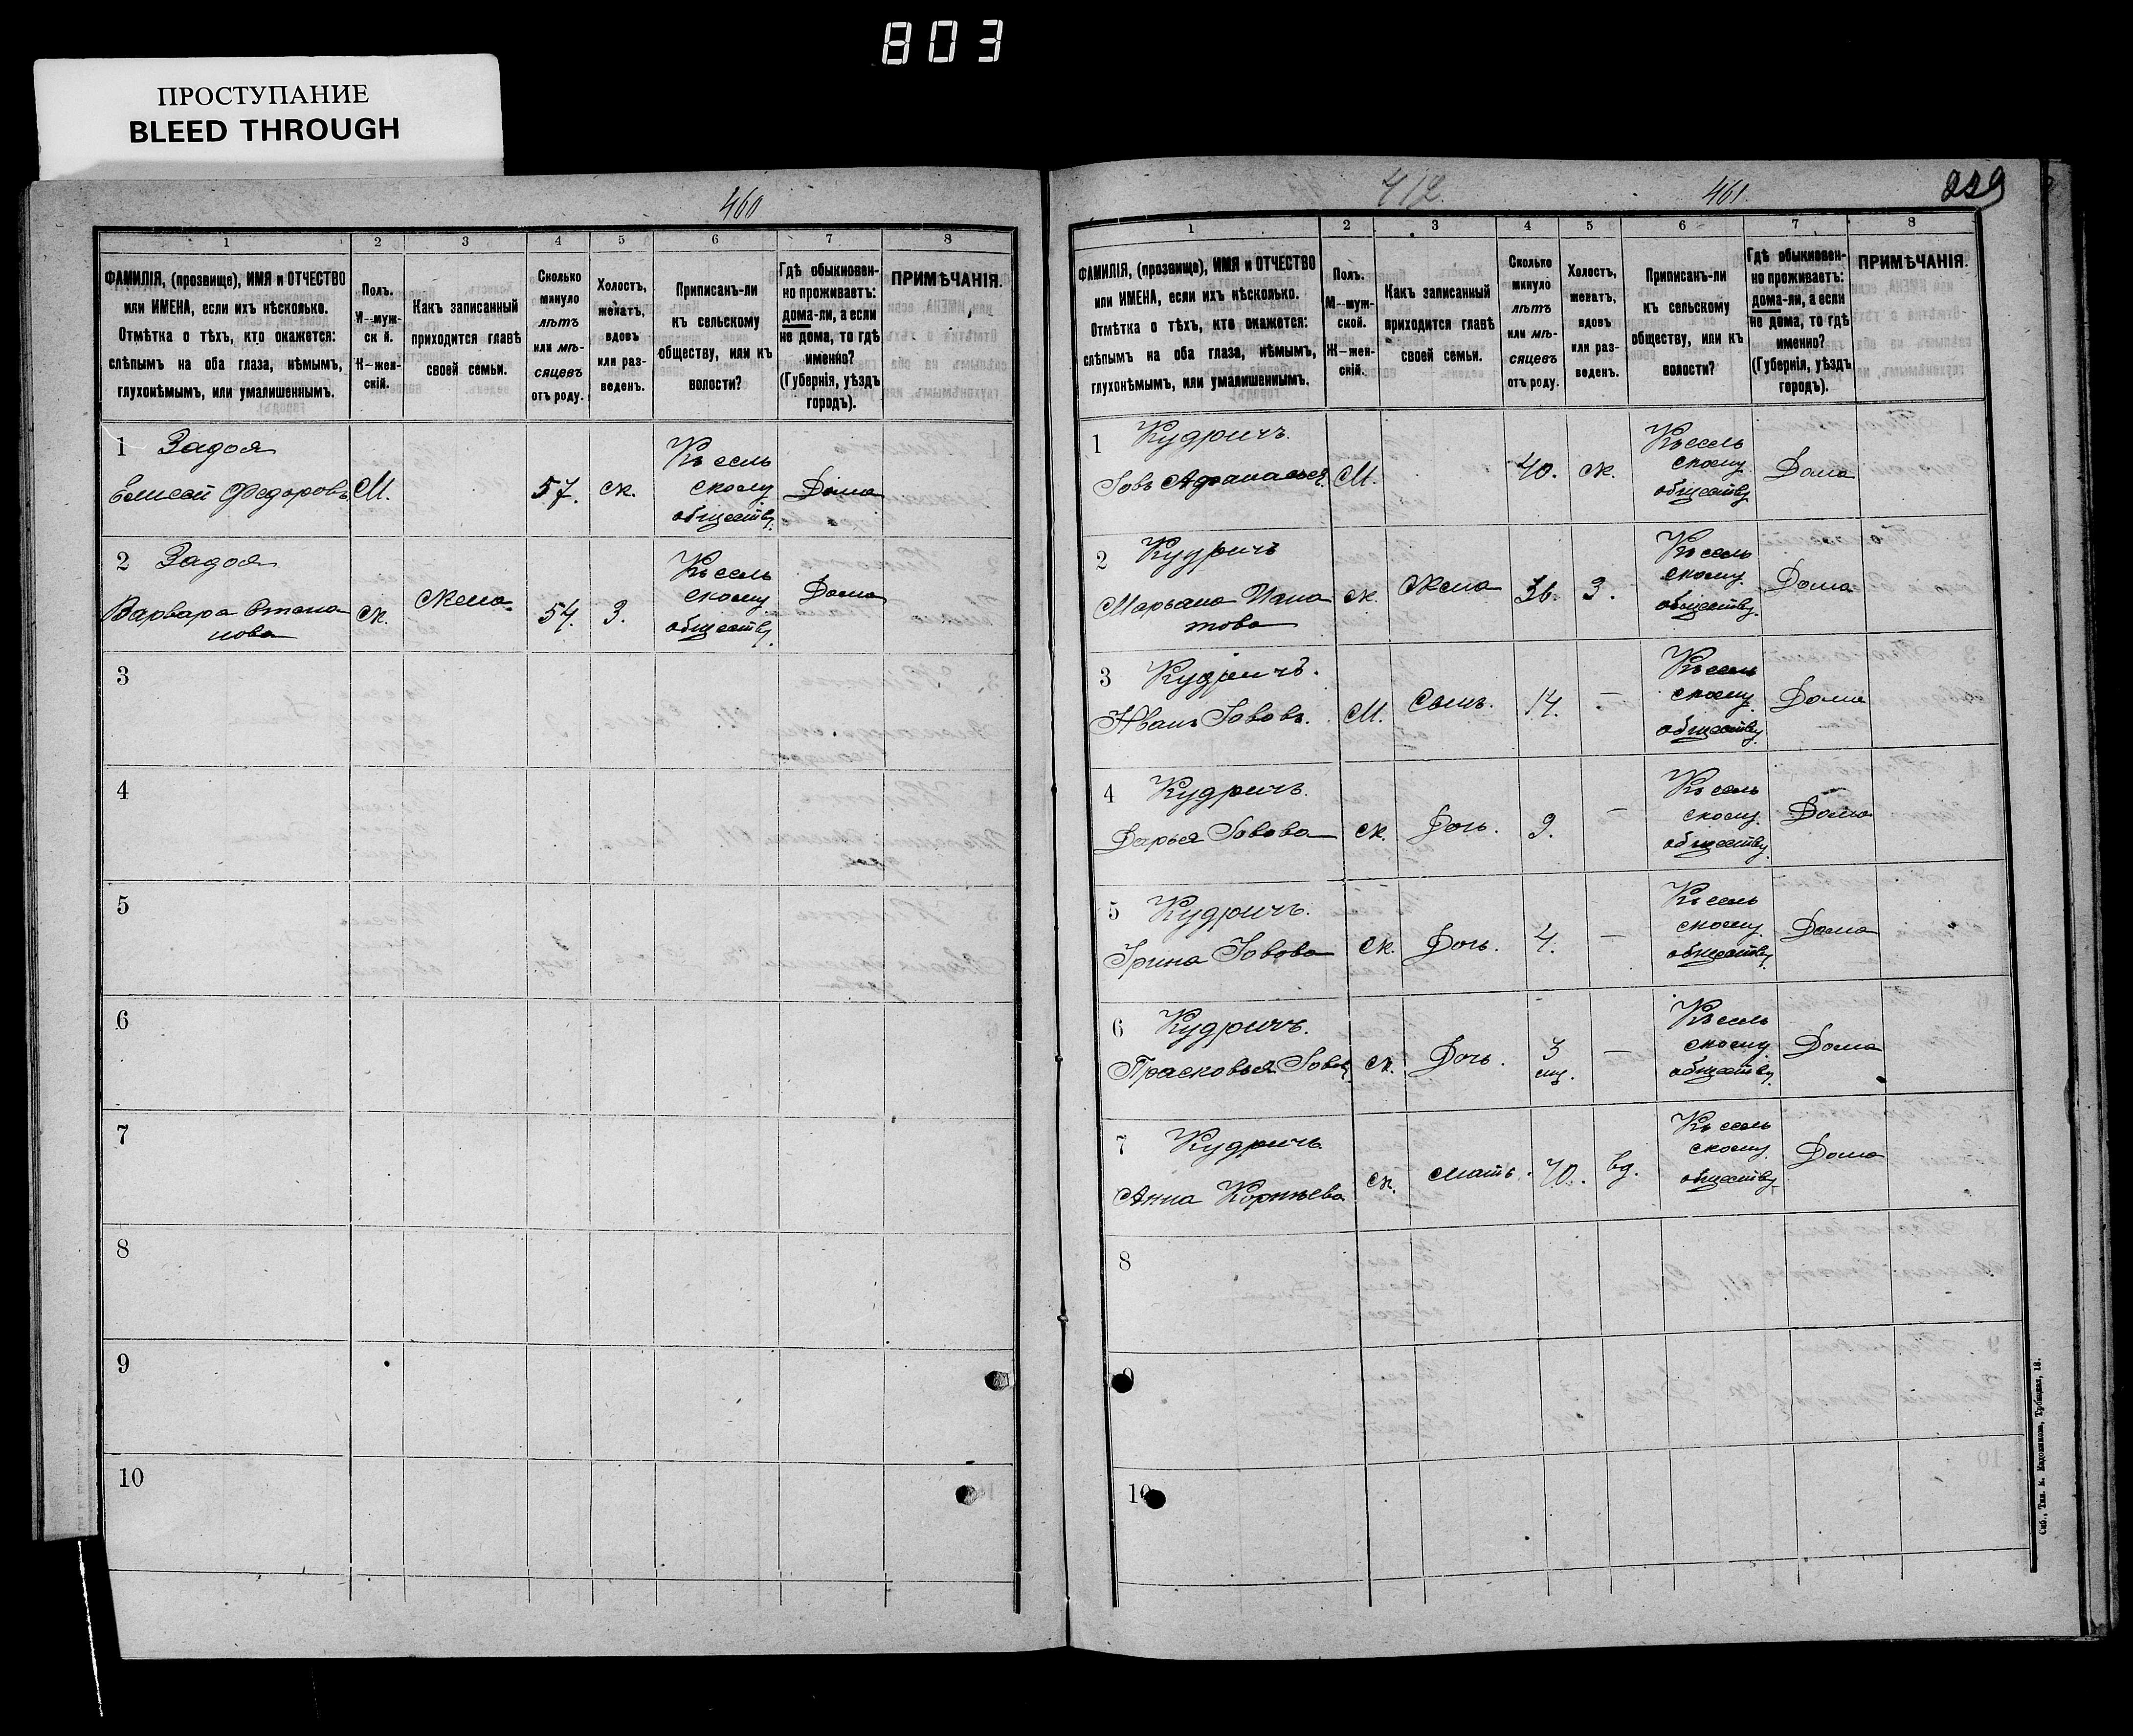 803
ПРОСТУПАНИЕ
BLEED THROUGH
460
1 2 3 4 5 6 7 8
ФАМИЛІЯ, (прозвище), ИМЯ и ОТЧЕСТВО или ИМЕНА, если ихъ нѣсколько. Отмѣтка о тѣхъ, кто окажется: слѣпымъ на оба глаза, нѣмымъ, глухонѣмымъ, или умалишеннымъ.
Полъ. М—мужской. Ж—женскій.
Какъ записанный приходится главѣ своей семьи.
Сколько минуло лѣтъ или мѣсяцевъ отъ роду.
Холостъ, женатъ, вдовъ или разведенъ.
Приписанъ-ли къ сельскому обществу, или къ волости?
Гдѣ обыкновенно проживаетъ: дома-ли, а если не дома, то гдѣ именно? (Губернія, уѣздъ городъ).
ПРИМѢЧАНІЯ.
1 Задоя
Елисей Федоровъ М. 57. ж. Къ сельскому обществу. Дома
2 Задоя
Варвара Степанова ж. Жена 54. З. Къ сельскому обществу. Дома
3
4
5
6
7
8
9
10
412. 461 229
1 2 3 4 5 6 7 8
ФАМИЛІЯ, (прозвище), ИМЯ и ОТЧЕСТВО или ИМЕНА, если ихъ нѣсколько. Отмѣтка о тѣхъ, кто окажется: слѣпымъ на оба глаза, нѣмымъ, глухонѣмымъ, или умалишеннымъ.
Полъ. М—мужской. Ж—женскій.
Какъ записанный приходится главѣ своей семьи.
Сколько минуло лѣтъ или мѣсяцевъ отъ роду.
Холостъ, женатъ, вдовъ или разведенъ.
Приписанъ-ли къ сельскому обществу, или къ волости?
Гдѣ обыкновенно проживаетъ: дома-ли, а если не дома, то гдѣ именно? (Губернія, уѣздъ городъ).
ПРИМѢЧАНІЯ.
1 Кудричъ.
Іовъ М. 40. ж. Къ сельскому обществу Дома
2 Кудричъ
Марьяна Игнатова ж. Жена 36. З. Къ сельскому обществу. Дома
3 Кудричъ.
Иванъ Іововъ. М. Сынъ. 14. — Къ сельскому обществу. Дома
4 Кудричъ.
Дарья Іовова ж. Дочь. 9. — Къ сельскому обществу. Дома
5 Кудричъ.
Ірина Іовова ж. Дочь. 4. — Къ сельскому обществу. Дома
6 Кудричъ.
Прасковья Іова ж. Дочь. 3 мц. — Къ сельскому обществу. Дома
7 Кудричъ
Анна Корнѣева ж. Мать. 70. вд. Къ сельскому обществу. Дома
8
9
10
Спб., Тип. М. Евдокимова, Троицкая, 18.